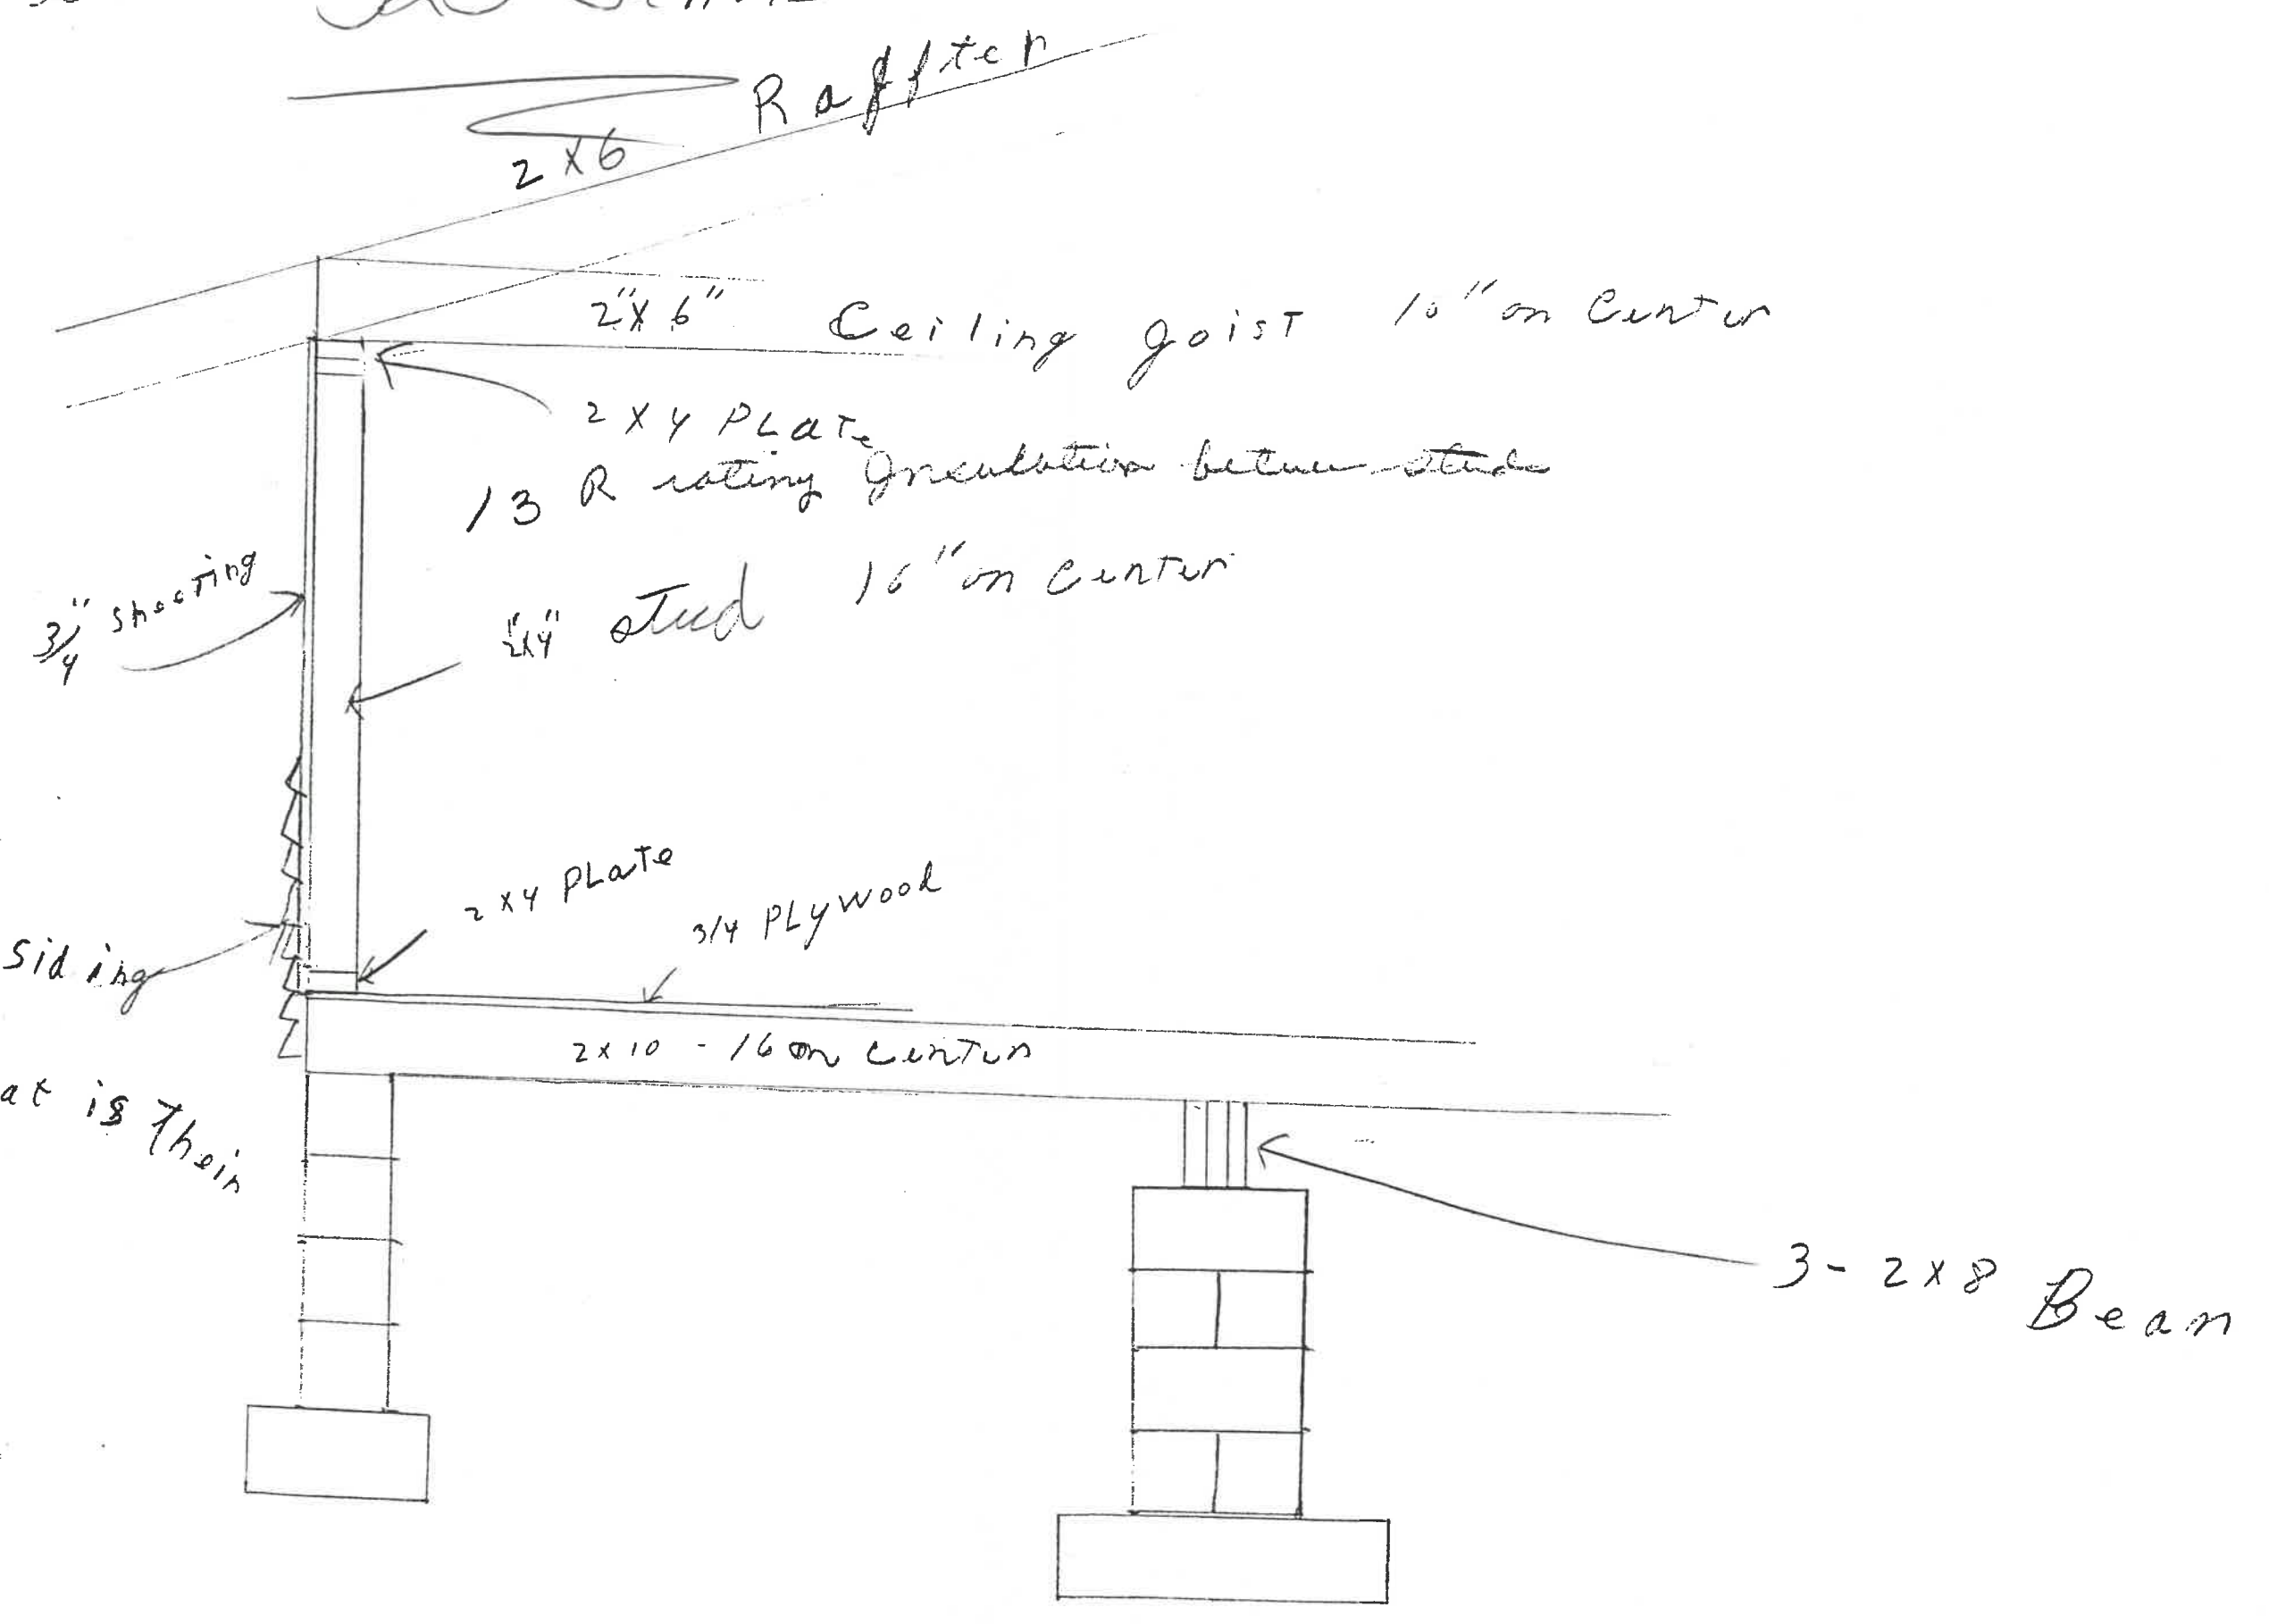 Raffter
2 x 6
2" x 6" Ceiling Joist 16" on Center
2 x 4 PLate
13 R rating Insulation between studs
3/4" sheeting
2"x4" stud 16" on center
2 x 4 PLate
3/4 PLywood
Siding
2 x 10 - 16 on center
is Thein
3 - 2 x 8 Beam